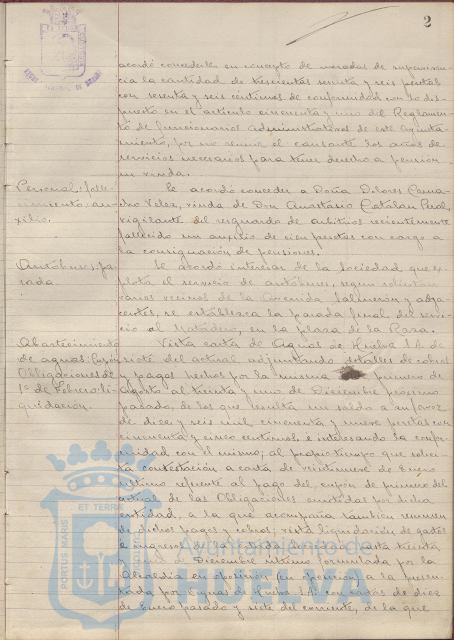 2
acordó concederle en concepto de mesadas de supervivencia
la cantidad de trescientas setenta y seis pesetas
con sesenta y seis céntimos de conformidad con lo dispuesto
en el artículo cincuenta y uno del Reglamento
de funcionarios administrativos de este Ayuntamiento,
por no reunir el causante los años de
servicios necesarios para tener derecho a pensión
su viuda.
Personal: fallecimiento: auxilio.
Se acordó conceder a Doña Dolores Camacho
Velez, viuda de Don Anastasio Catalán
vigilante del resguardo de arbitrios recientemente
fallecido un auxilio de cien pesetas con cargo a
la consignación de pensiones.
Autobuses: parada
Se acordó interesar de la Sociedad que explota
el servicio de autobuses, según solicitan
varios vecinos de la Avenida y adyacentes,
se establezca la parada final del servicio
al Matadero, en la plaza de la Raza.
Abastecimiento de aguas: Cupón Obligaciones de 1º de Febrero: liquidación.
Vista carta de Aguas de Huelva S.A. de
siete del actual adjuntando detalles de cobros
y pagos hechos por la misma primero de
Agosto al treinta y uno de Diciembre próximo
pasado, de los que resulta un saldo a su favor
de diez y seis mil cincuenta y nueve pesetas con
cincuenta y cinco céntimos e interesando la conformidad
con el mismo; al propio tiempo que solicita
contestación a carta de veintinueve de Enero
último referente al pago del cupón de primero del
actual de las Obligaciones emitidas por dicha
entidad, a la que acompaña también resumen
de dichos pagos y cobros; vista liquidación de gastos
e ingresos de la citada Compañía hasta treinta
y uno de Diciembre último formulada por la
Alcaldía en oposición (en oposición) a la presentada
por Aguas de Huelva S.A. con cartas de diez
de Enero pasado y siete del corriente, de la que
PORTUS MARIS ET TERRAE
Ayuntamiento de
HUELVA